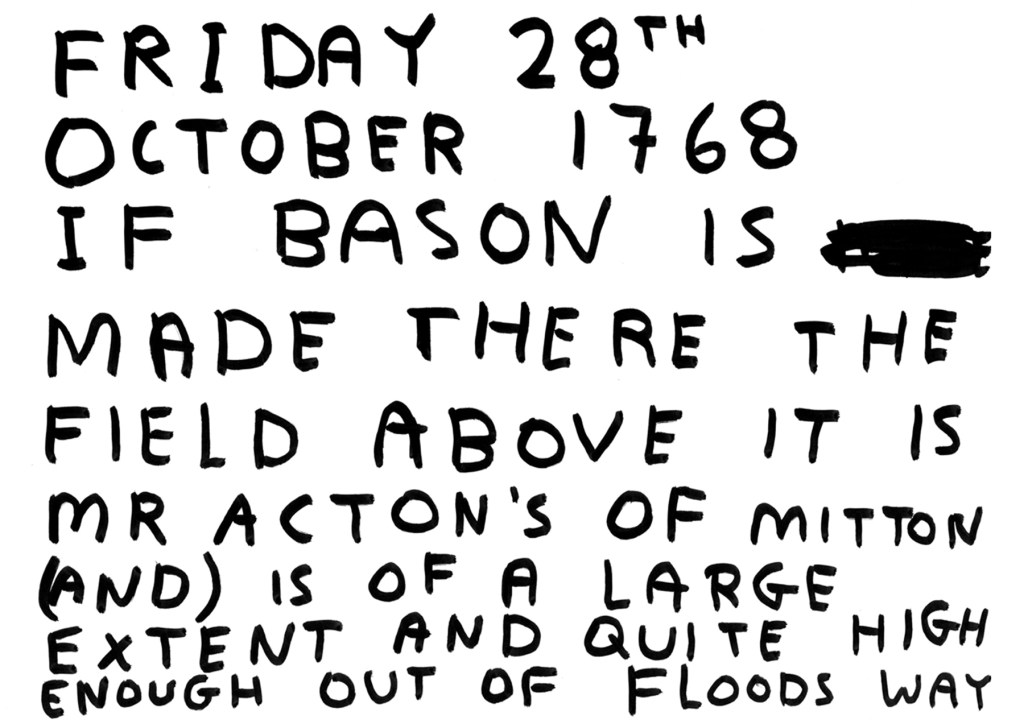 FRIDAY 28TH
OCTOBER 1768
IF BASON IS
MADE THERE THE
FIELD ABOVE IT IS
MR ACTON'S OF MITTON
(AND) IS OF A LARGE
EXTENT AND QUITE HIGH
ENOUGH OUT OF FLOODS WAY